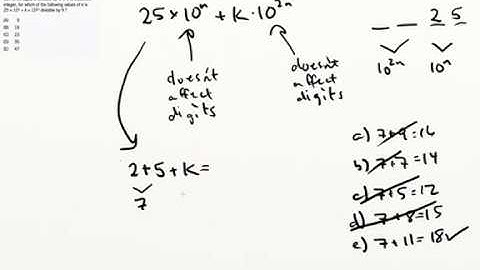 integer, for which of the following values of k is
25 × 10ⁿ + k × 10²ⁿ divisible by 9 ?
(A) 9
(B)
(C) 23
(D) 35
(E) 47
25×10ⁿ + K·10²ⁿ
doesn't affect digits
doesn't affect digits
_ _ 2 5
10²ⁿ 10ⁿ
2+5+K=
7
a) 7+9=16
b) 7+7=14
c) 7+5=12
d) 7+8=15
e) 7+11=18✓